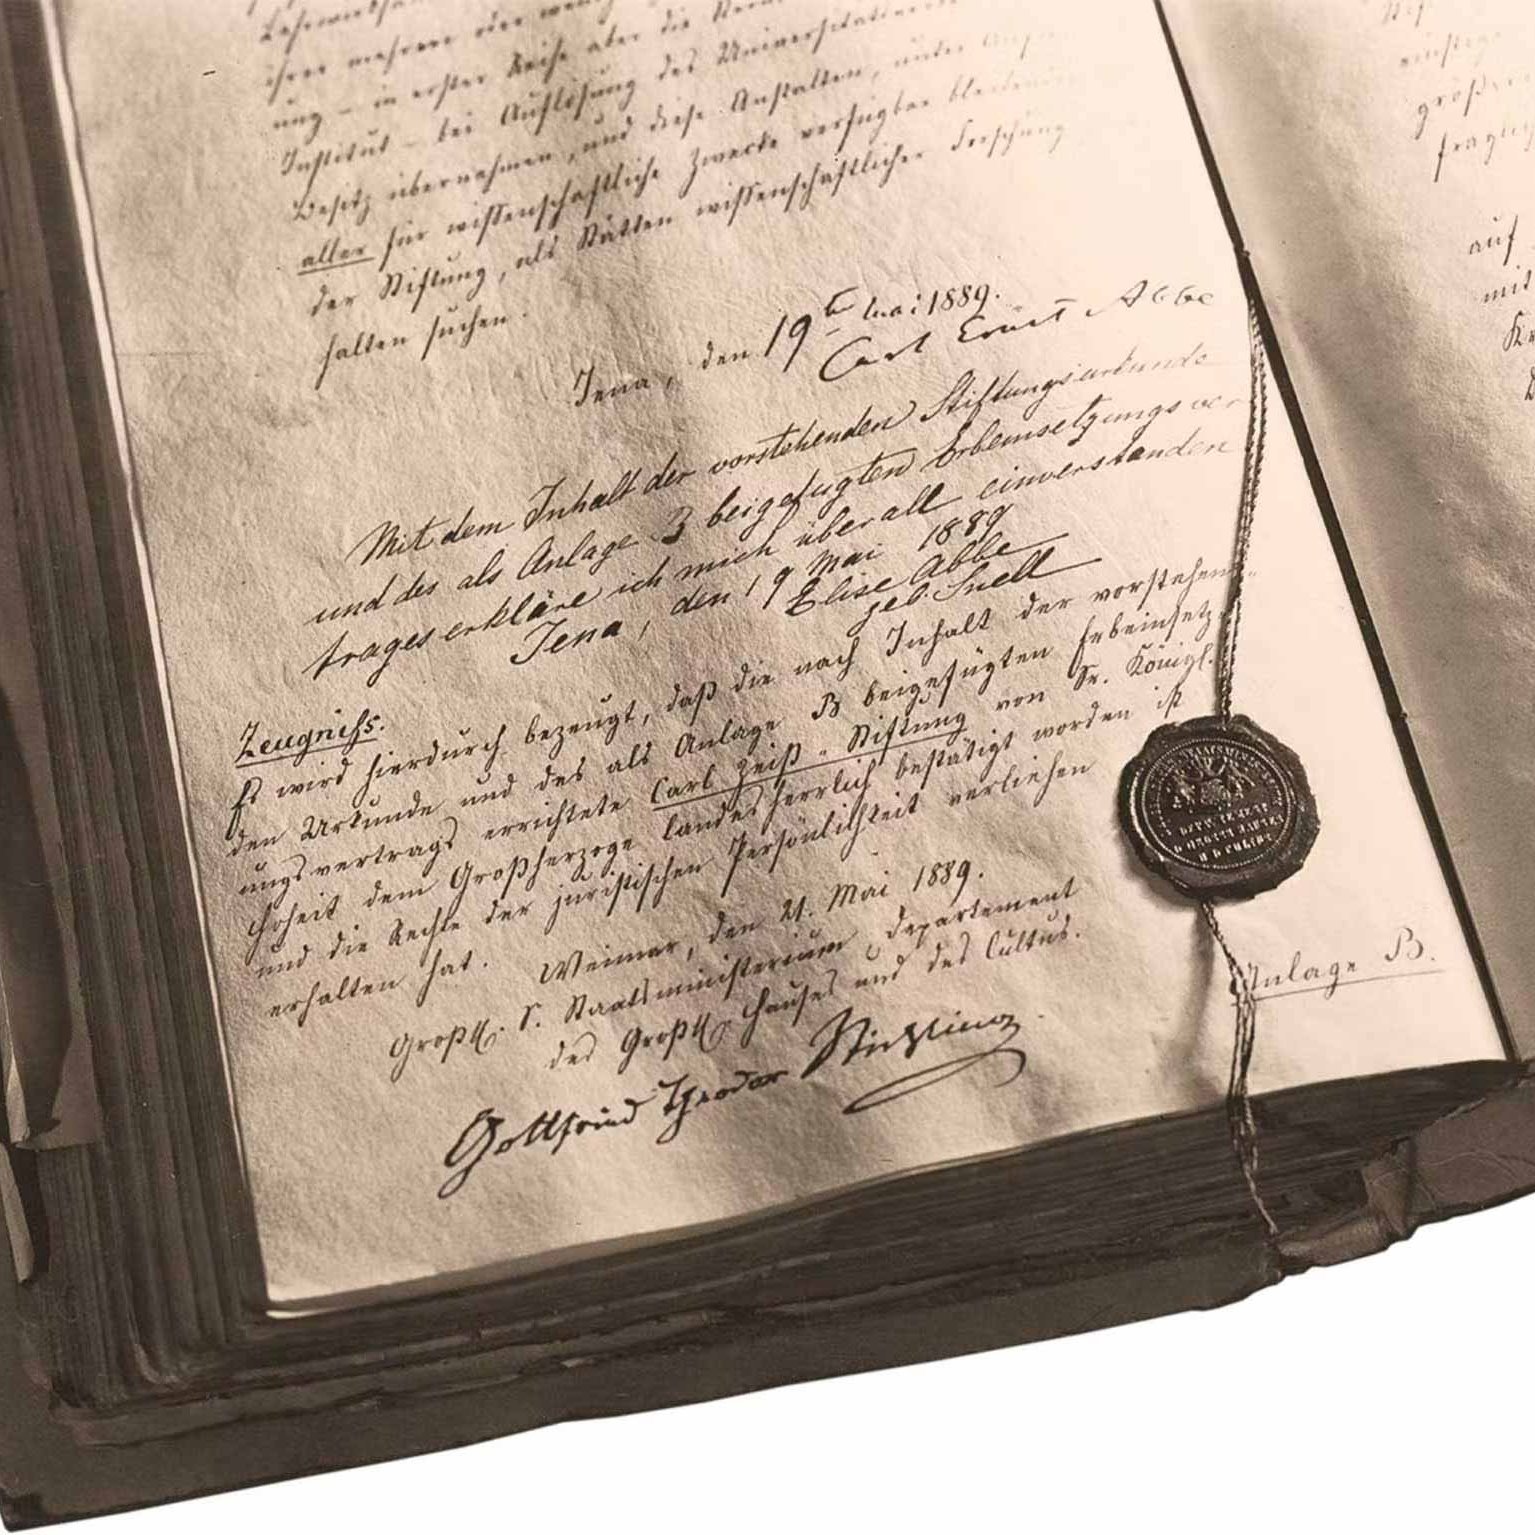 ihrer mehrere oder
ung - in erster Reihe aber die
Institut - bei Auflösung des Universitäts
Besitz übernehmen, und diese Anstalten, unter
aller für wissenschaftliche Zwecke verfügbar bleibenden
der Stiftung, als Stätten wissenschaftlicher Forschung
halten suchen.
Jena, den 19ten Mai 1889.
Carl Ernst Abbe
Mit dem Inhalt der vorstehenden Stiftungsurkunde
und des als Anlage B beigefügten Erbeinsetzungsver
trages erkläre ich mich überall einverstanden
Jena, den 19 Mai 1889
Elise Abbe
geb. Snell
Zeugniß.
Es wird hierdurch bezeugt, daß die nach Inhalt der vorstehen-
den Urkunde und des als Anlage B beigefügten Erbeinsetz-
ungsvertrags errichtete Carl Zeiß-Stiftung von Sr. Königl.
Hoheit dem Großherzoge landesherrlich bestätigt worden ist
und die Rechte der juristischen Persönlichkeit verliehen
erhalten hat.
Weimar, den 21. Mai 1889.
Großh. S. Staatsministerium, Departement
des Großh. Hauses und des Cultus.
Gottfried Theodor Stichling
Anlage B.
auf
mit